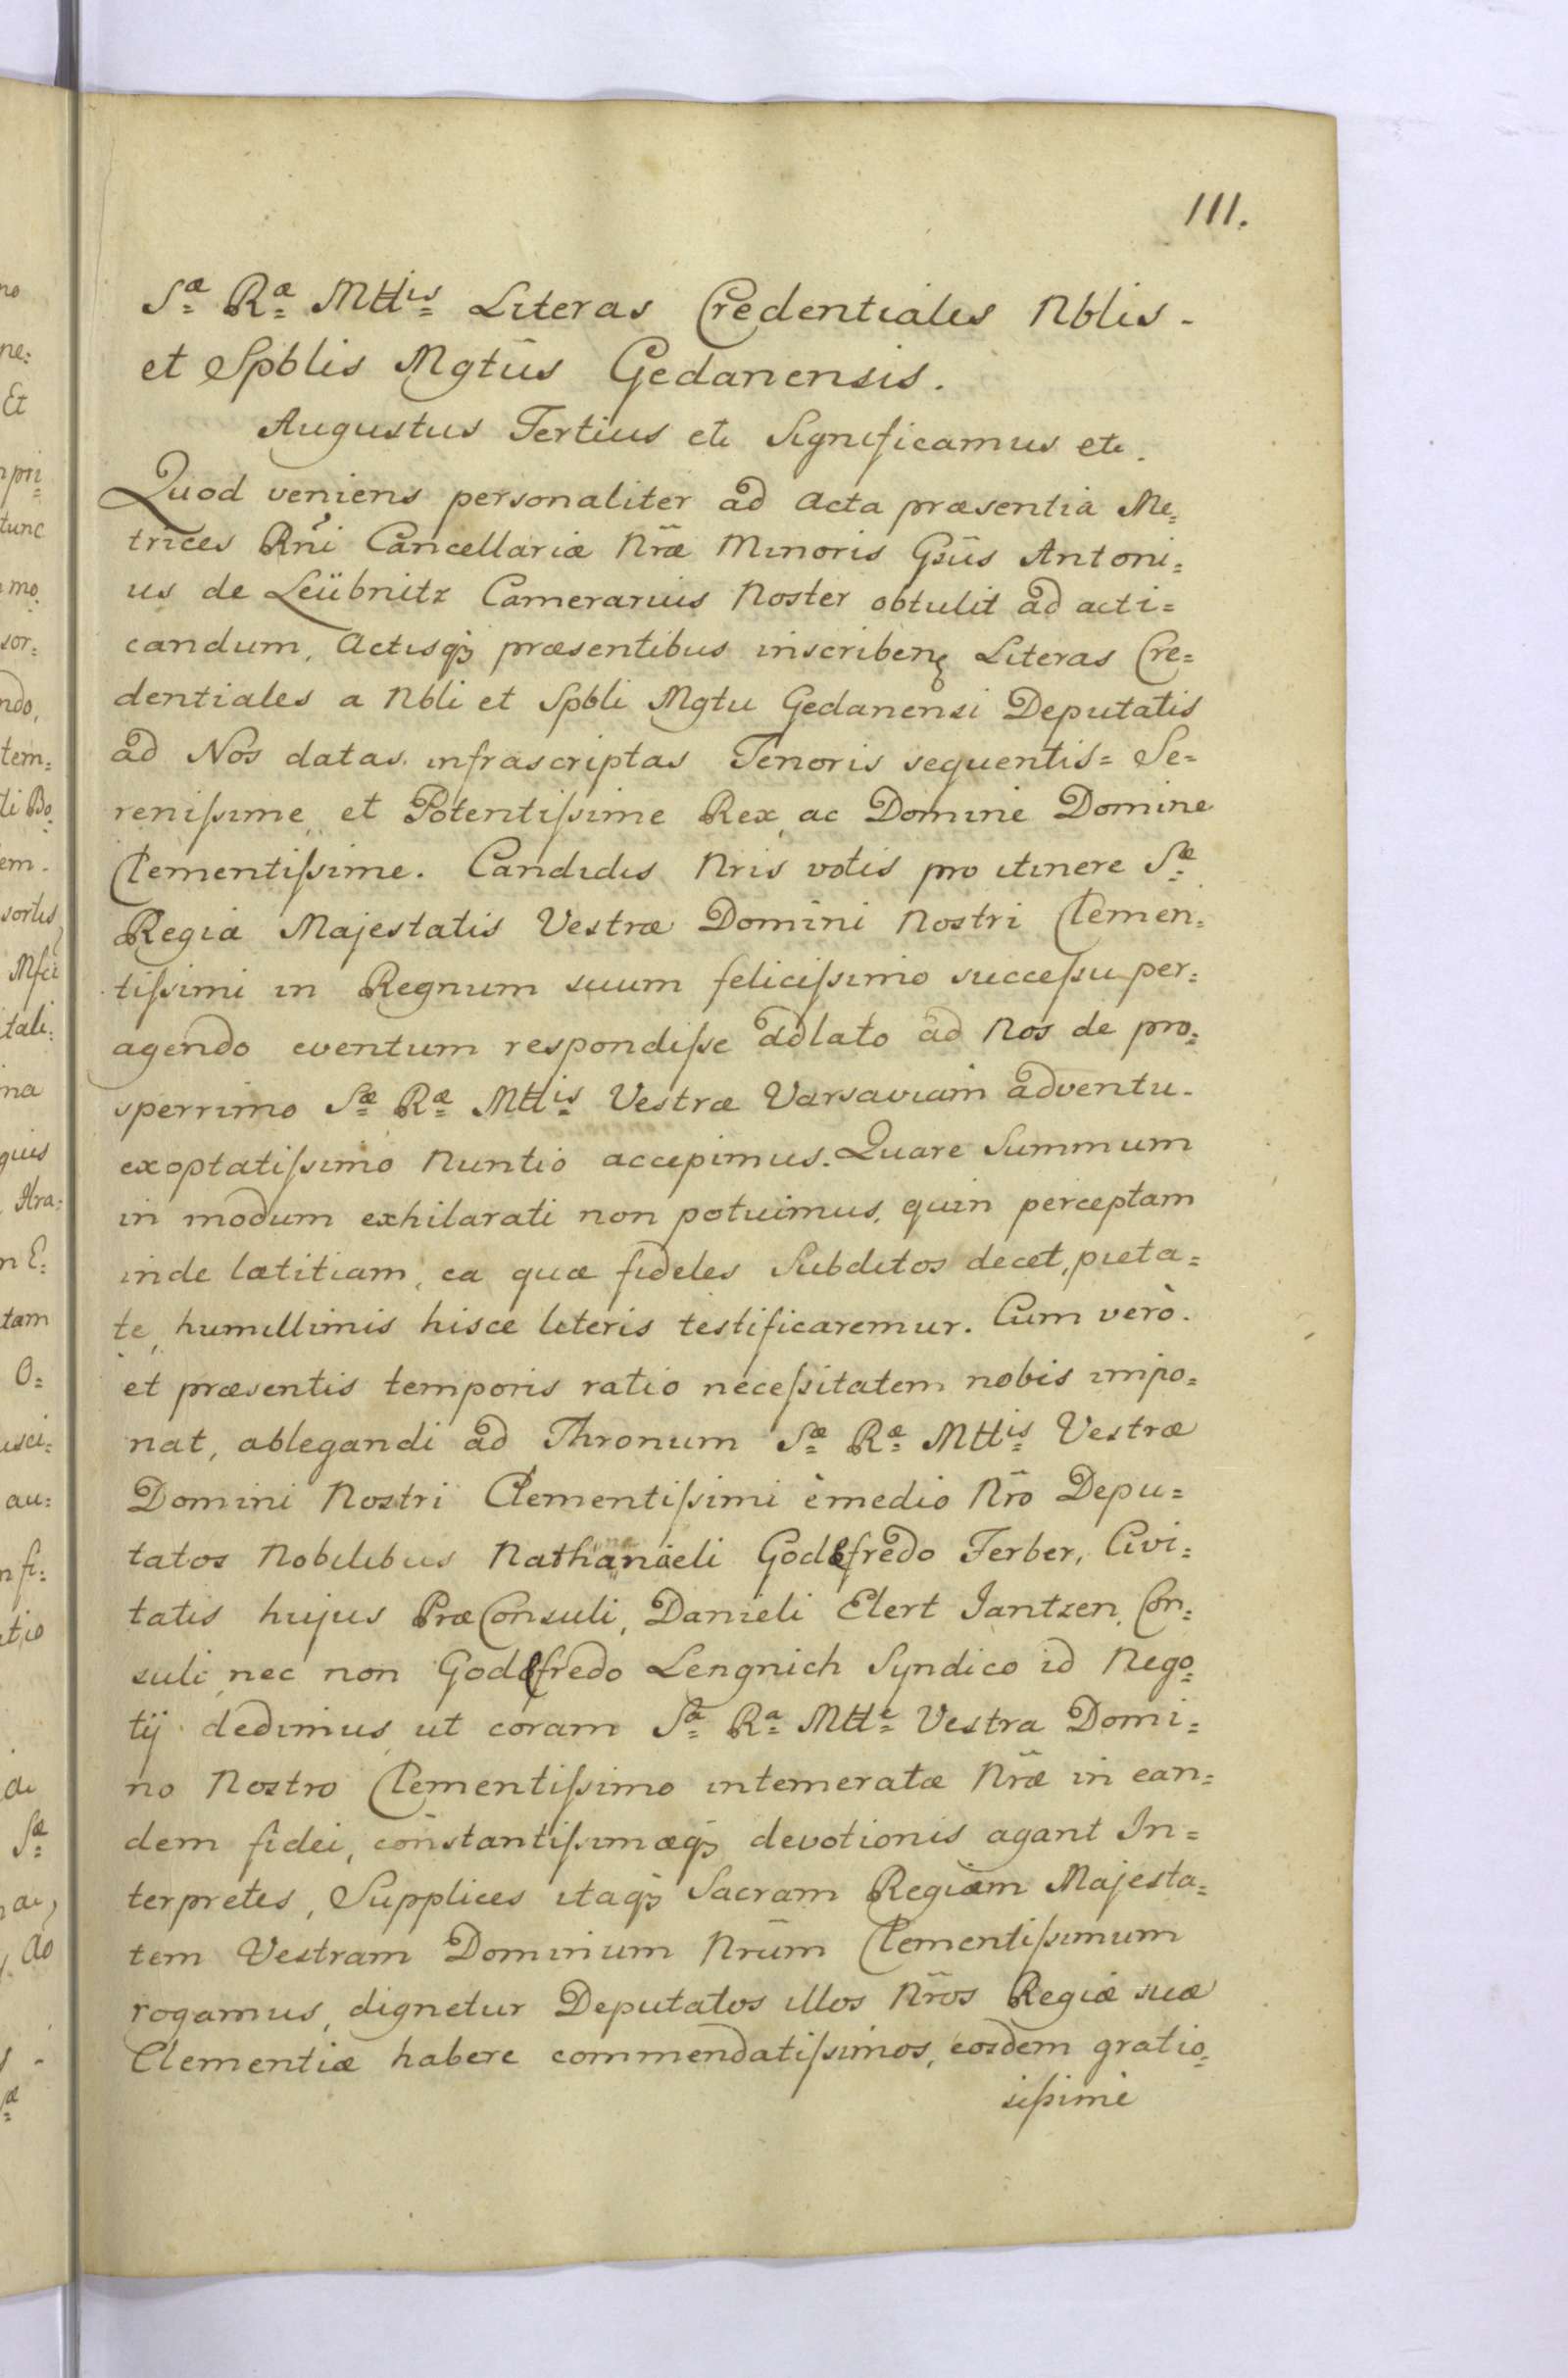 111.
Sæ Ræ Mttis Literas Credentiales Nblis
et Spblis Mgtūs Gedanensis.
Augustus Tertius etc Significamus etc.
Quod veniens personaliter ad acta præsentia Me=
trices Rni Cancellariæ Nræ Minoris Gsūs Antoni=
us de Leübnitz Camerarius Noster obtulit ad acti=
candum, Actisqȝ præsentibus inscriben Literas Cre=
dentiales a Nbli et Spbli Mgtu Gedanensi Deputatis
ad Nos datas infrascriptas Tenoris sequentis= Se=
renissime, et Potentissime Rex, ac Domine Domine
Clementissime. Candidis Nris votis pro itinere Sæ
Regiæ Majestatis Vestræ Domini Nostri Clemen=
tissimi in Regnum suum felicissimo successu per=
agendo eventum respondisse adlato ad Nos de pro=
sperrimo Sæ Ræ Mttis Vestræ Varsaviam adventu
exoptatissimo Nuntio accepimus. Quare Summum
in modum exhilarati non potuimus, quin perceptam
inde lætitiam, ea quæ fideles Subditos decet, pieta=
te, humillimis hisce literis testificaremur. Cum verò
et præsentis temporis ratio necessitatem nobis impo=
nat, ablegandi ad Thronum Sæ Ræ Mttis Vestræ
Domini Nostri Clementissimi è medio Nro Depu=
tatos Nobilibus Nathanaeli Godefredo Ferber, Civi=
tatis hujus PræConsuli, Danieli Elert Jantzen, Con=
suli, nec non Godefredo Lengnich Syndico id Nego=
tij dedimus, ut coram Sa Ra Mtte Vestra Domi=
no Nostro Clementissimo intemeratæ Nræ in ean=
dem fidei, constantissimæqȝ devotionis agant In=
terpretes, Supplices itaqȝ Sacram Regiam Majesta=
tem Vestram Dominum Nrum Clementissimum
rogamus, dignetur Deputatos illos Nros Regiæ suæ
Clementiæ habere commendatissimos, eosdem gratio=
sissimè